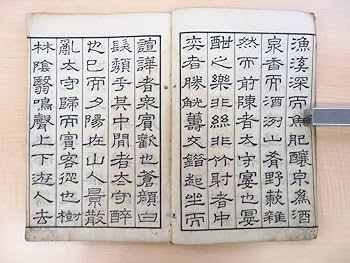 漁溪深而魚肥釀泉爲酒
泉香而酒洌山肴野蔌雜
然而前陳者太守宴也宴
酣之樂非絲非竹射者中
奕者勝觥籌交錯起坐而
諠譁者衆賓歡也蒼顏白
髮頹乎其中間者太守醉
也已而夕陽在山人景散
亂太守歸而賓客從也樹
林陰翳鳴聲上下遊人去